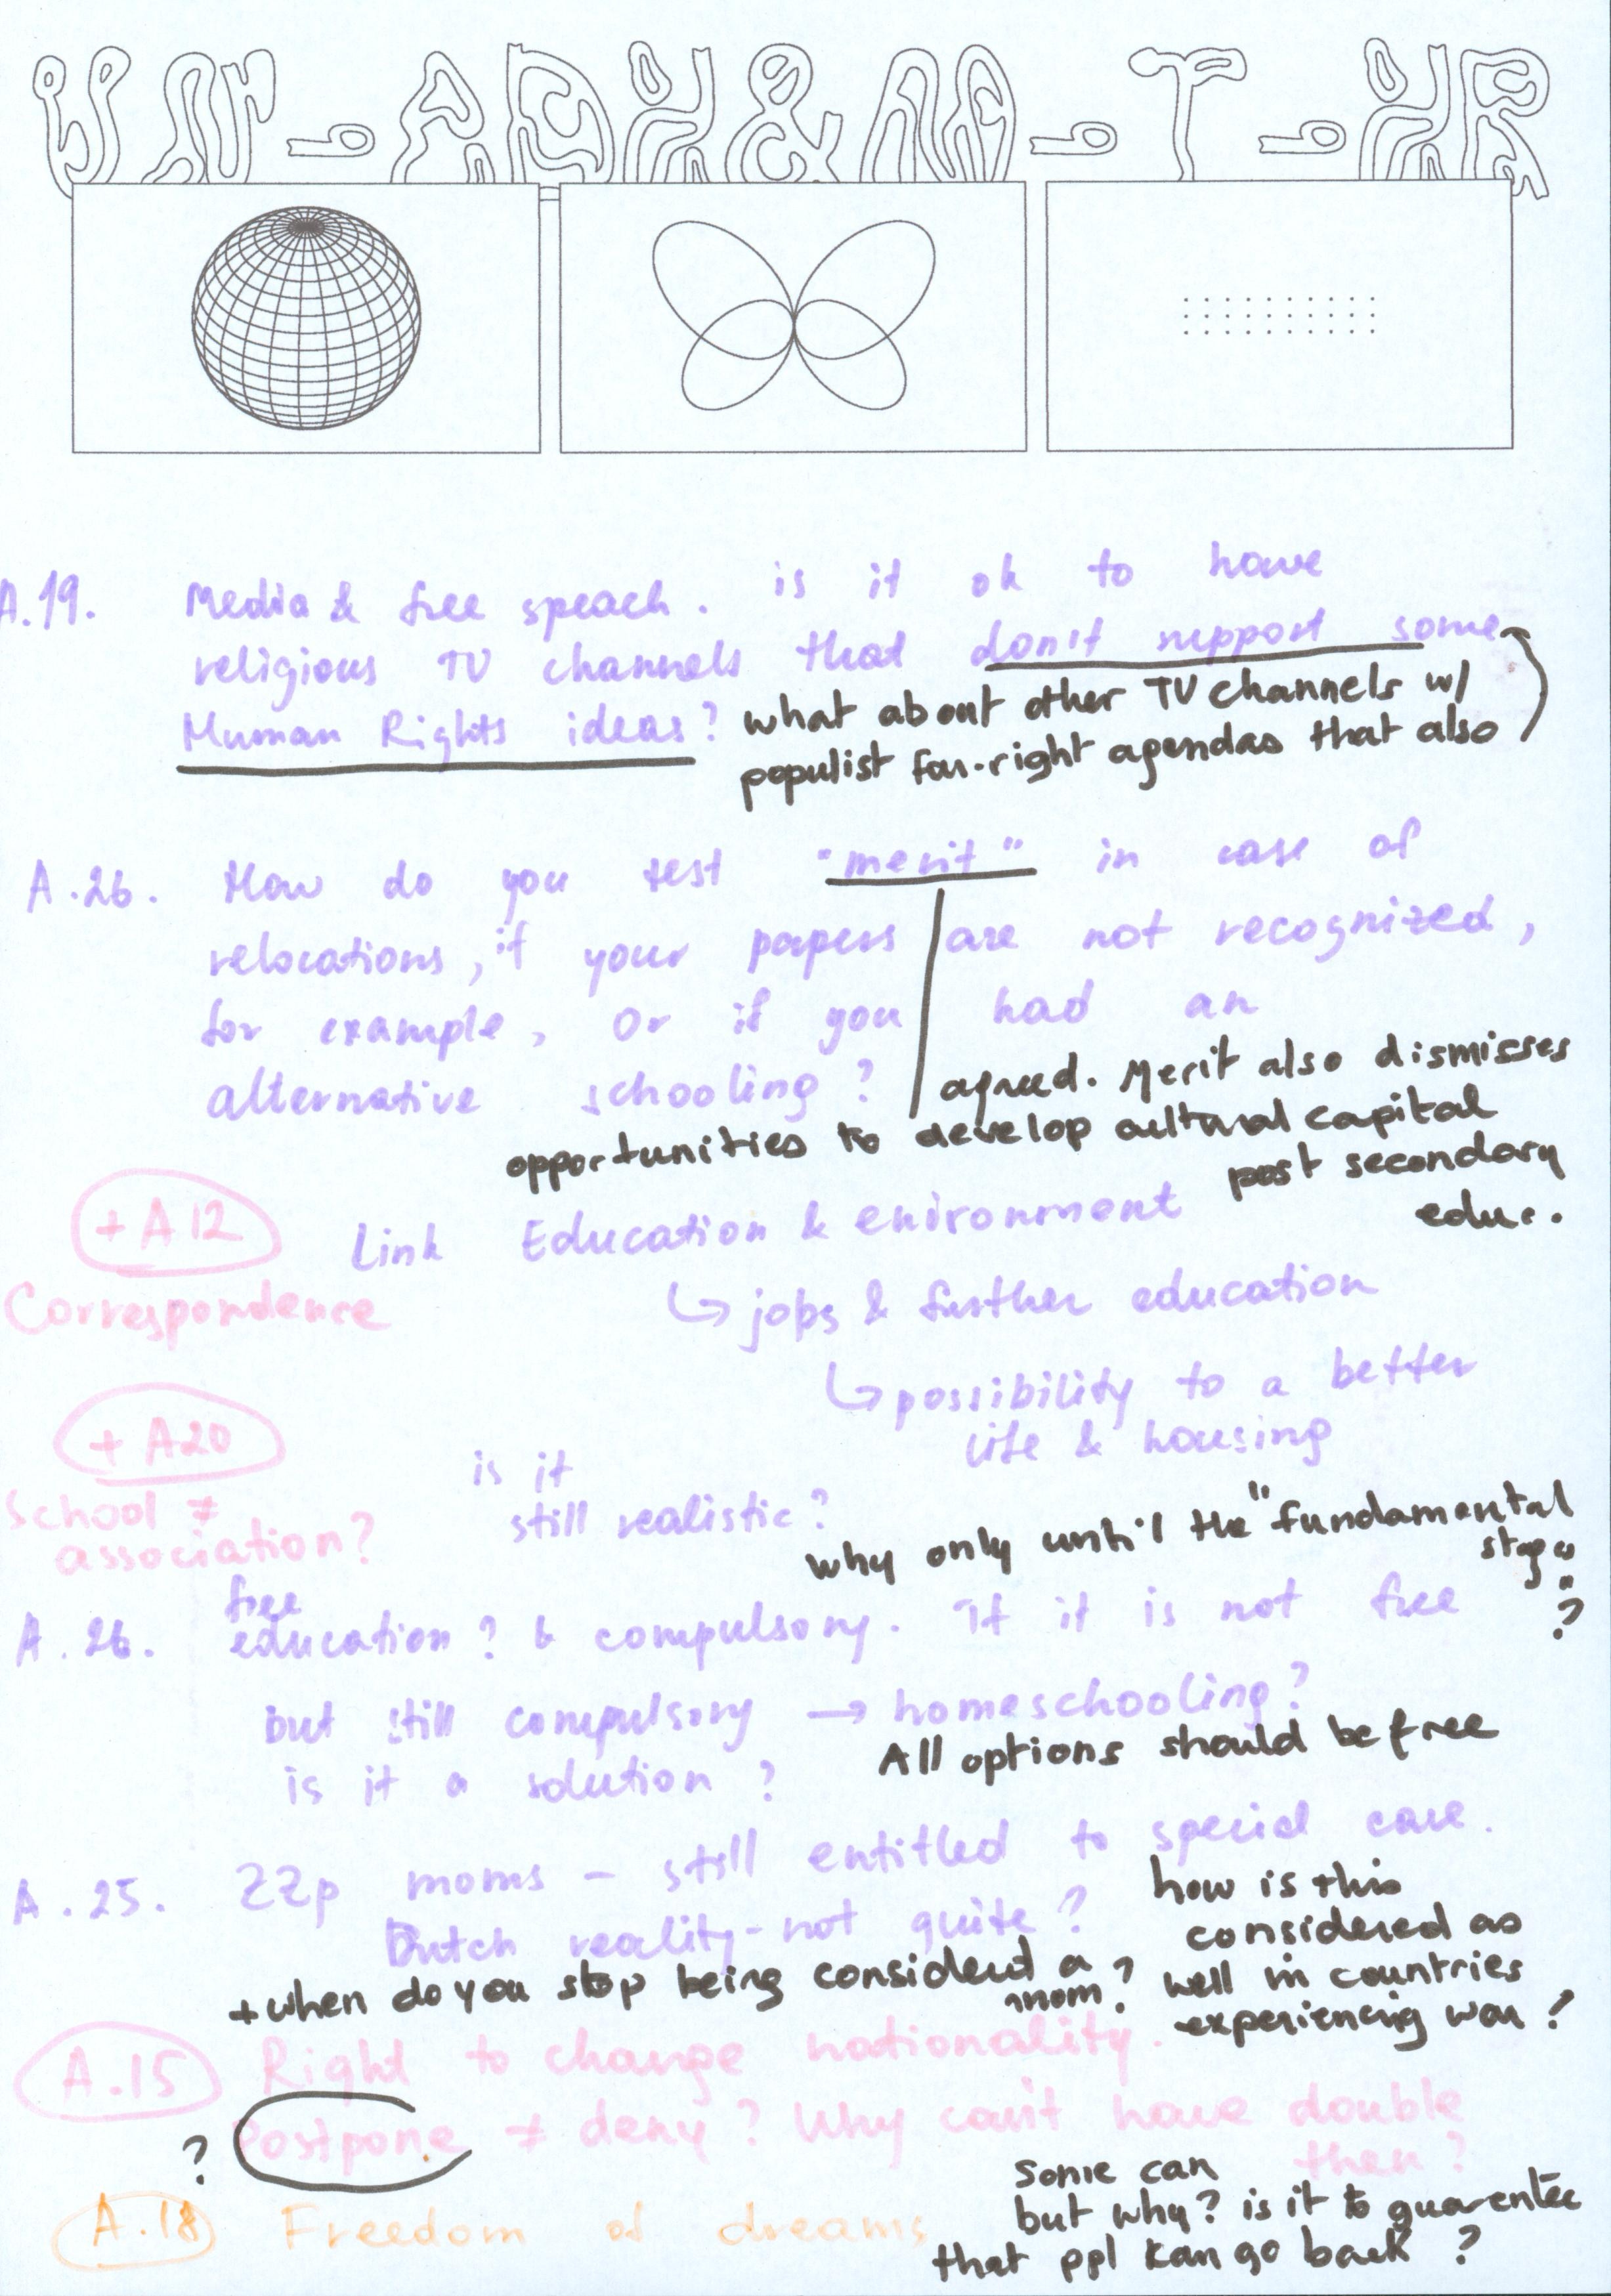 UN-ADH&M-T-HR
A.19. Media & free speach. is it ok to have
religious TV channels that don't support some
Human Rights ideas?
what about other TV channels w/
populist far-right agendas that also
A.26. How do you test "merit" in case of
relocations, if your papers are not recognized,
for example, or if you had an
alternative schooling?
agreed. Merit also dismisses
opportunities to develop cultural capital
post secondary
educ.
+ A12
Correspondence
Link Education & enironment
↳ jobs & further education
↳ possibility to a better
life & housing
+ A20
School ≠
association?
is it
still realistic?
why only until the "fundamental
stages"
?
A.26. free
education? & compulsory. If it is not free
but still compulsory → homeschooling?
is it a solution?
All options should be free
A.25. ZZp moms - still entitled to special care.
Dutch reality - not quite?
+ when do you stop being considered a
mom?
how is this
considered as
well in countries
experiencing war?
A.15 Right to change nationality.
? Postpone ≠ deny? Why can't have double
then?
some can
but why? is it to guarentee
that ppl kan go back?
A.18 Freedom of dreams